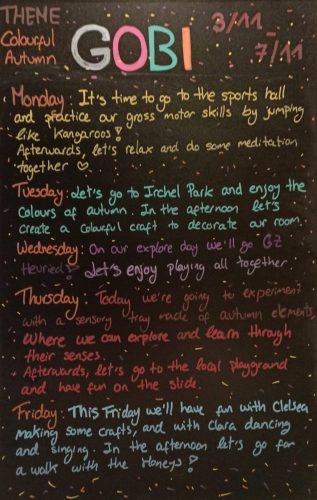 THEME
Colourful
Autumn
GOBI
3/11 -
7/11
Monday: It's time to go to the sports hall
and practice our gross motor skills by jumping
like Kangaroos!
Afterwards, let's relax and do some meditation
together ♡
Tuesday: Let's go to Irchel Park and enjoy the
colours of autumn. In the afternoon let's
create a colourful craft to decorate our room.
Wednesday: On our explore day we'll go GZ
Heuried! Let's enjoy playing all together
Thursday: Today we're going to experiment
with a sensory tray made of autumn elements,
where we can explore and learn through
their senses.
Afterwards, let's go to the local playground
and have fun on the slide.
Friday: This Friday we'll have fun with Clelsea
making some crafts, and with Clara dancing
and singing. In the afternoon let's go for
a walk with the Honeys!